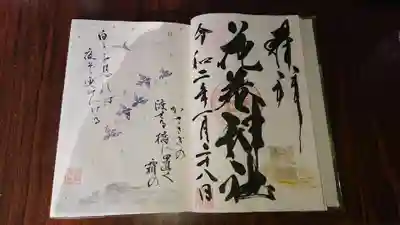 奉拝
花巻神社
令和二年一月二十八日
かささぎの
渡せる橋に置く霜の
白きを見れば
夜そ更けにける